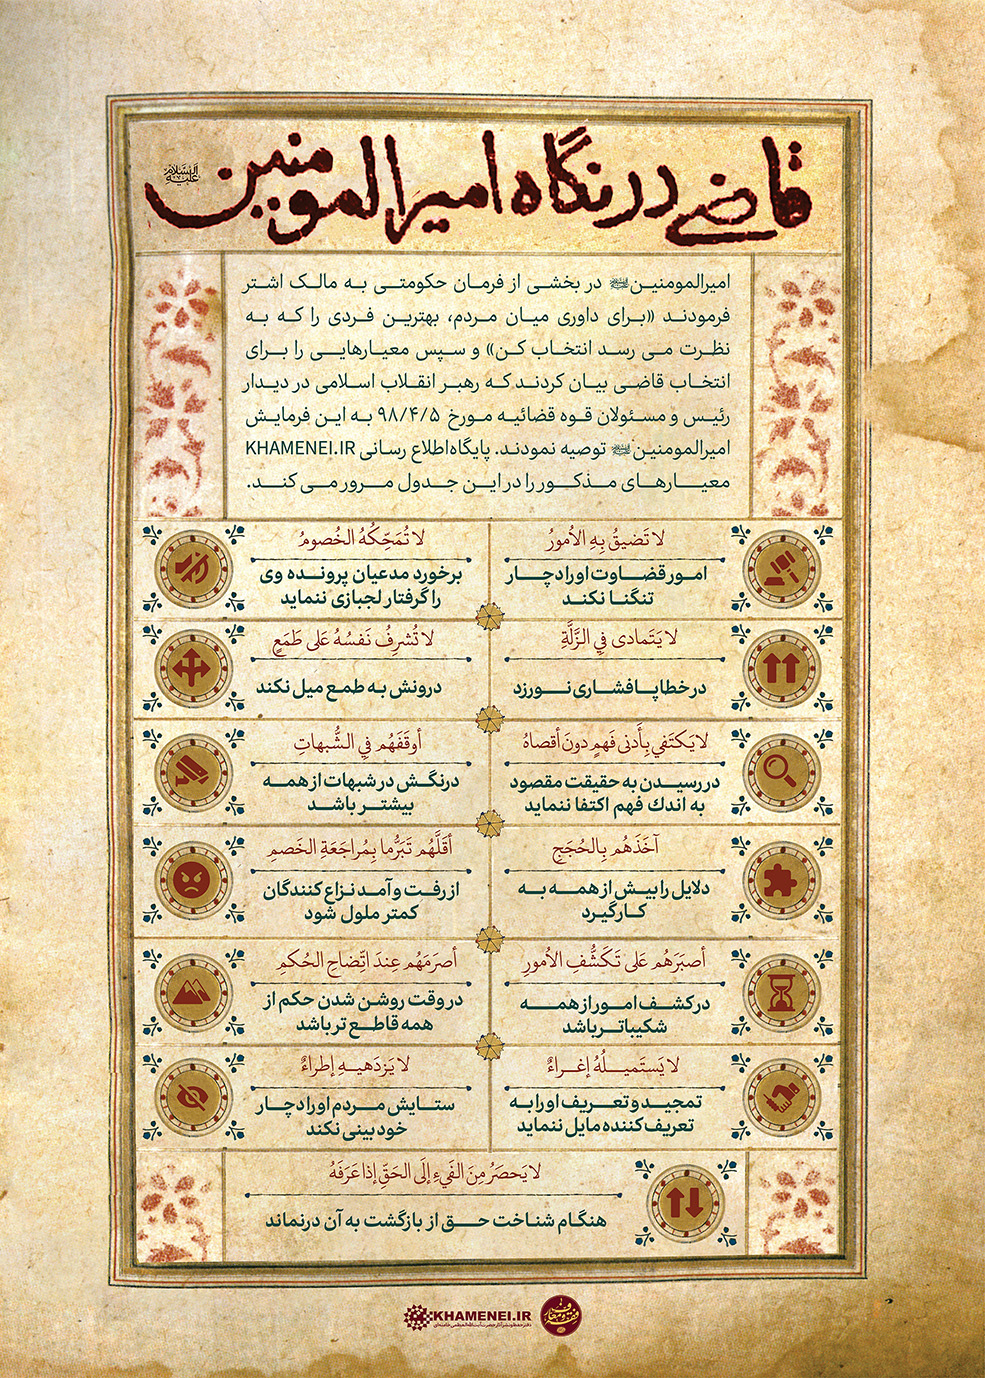 قاضی در نگاه امیرالمومنین علیه السلام
امیرالمومنین علیه‌السلام در بخشی از فرمان حکومتی به مالک اشتر
فرمودند «برای داوری میان مردم، بهترین فردی را که به
نظرت می رسد انتخاب کن» و سپس معیارهایی را برای
انتخاب قاضی بیان کردند که رهبر انقلاب اسلامی در دیدار
رئیس و مسئولان قوه قضائیه مورخ ۹۸/۴/۵ به این فرمایش
امیرالمومنین علیه‌السلام توصیه نمودند. پایگاه اطلاع رسانی KHAMENEI.IR
معیارهای مذکور را در این جدول مرور می کند.
لا تَضیقُ بِهِ الأمورُ
امور قضاوت او را دچار
تنگنا نکند
لا تُمَحِّکُهُ الخُصومُ
برخورد مدعیان پرونده وی
را گرفتار لجبازی ننماید
لا یَتَمادی فِي الزَّلَّةِ
در خطا پافشاری نورزد
لا تُشرِفُ نَفسُهُ عَلی طَمَعٍ
درونش به طمع میل نکند
لا یَکتَفي بِأَدنی فَهمٍ دونَ أقصاهُ
در رسیدن به حقیقت مقصود
به اندك فهم اکتفا ننماید
أوقَفَهُم فِي الشُّبهاتِ
درنگش در شبهات از همه
بیشتر باشد
آخَذَهُم بِالحُجَجِ
دلایل را بیش از همه به
کار گیرد
أقَلَّهُم تَبَرُّما بِمُراجَعَةِ الخَصمِ
از رفت و آمد نزاع کنندگان
کمتر ملول شود
أصبَرَهُم عَلی تَکَشُّفِ الأمورِ
در کشف امور از همه
شکیباتر باشد
أصرَمَهُم عِندَ اتِّضاحِ الحُکمِ
در وقت روشن شدن حکم از
همه قاطع تر باشد
لا یَستَمیلُهُ إغراءٌ
تمجید و تعریف او را به
تعریف کننده مایل ننماید
لا یَزدَهیهِ إطراءٌ
ستایش مردم او را دچار
خودبینی نکند
لا یَحصَرُ مِنَ الفَيءِ إلَی الحَقِّ إذا عَرَفَهُ
هنگام شناخت حق از بازگشت به آن درنماند
KHAMENEI.IR